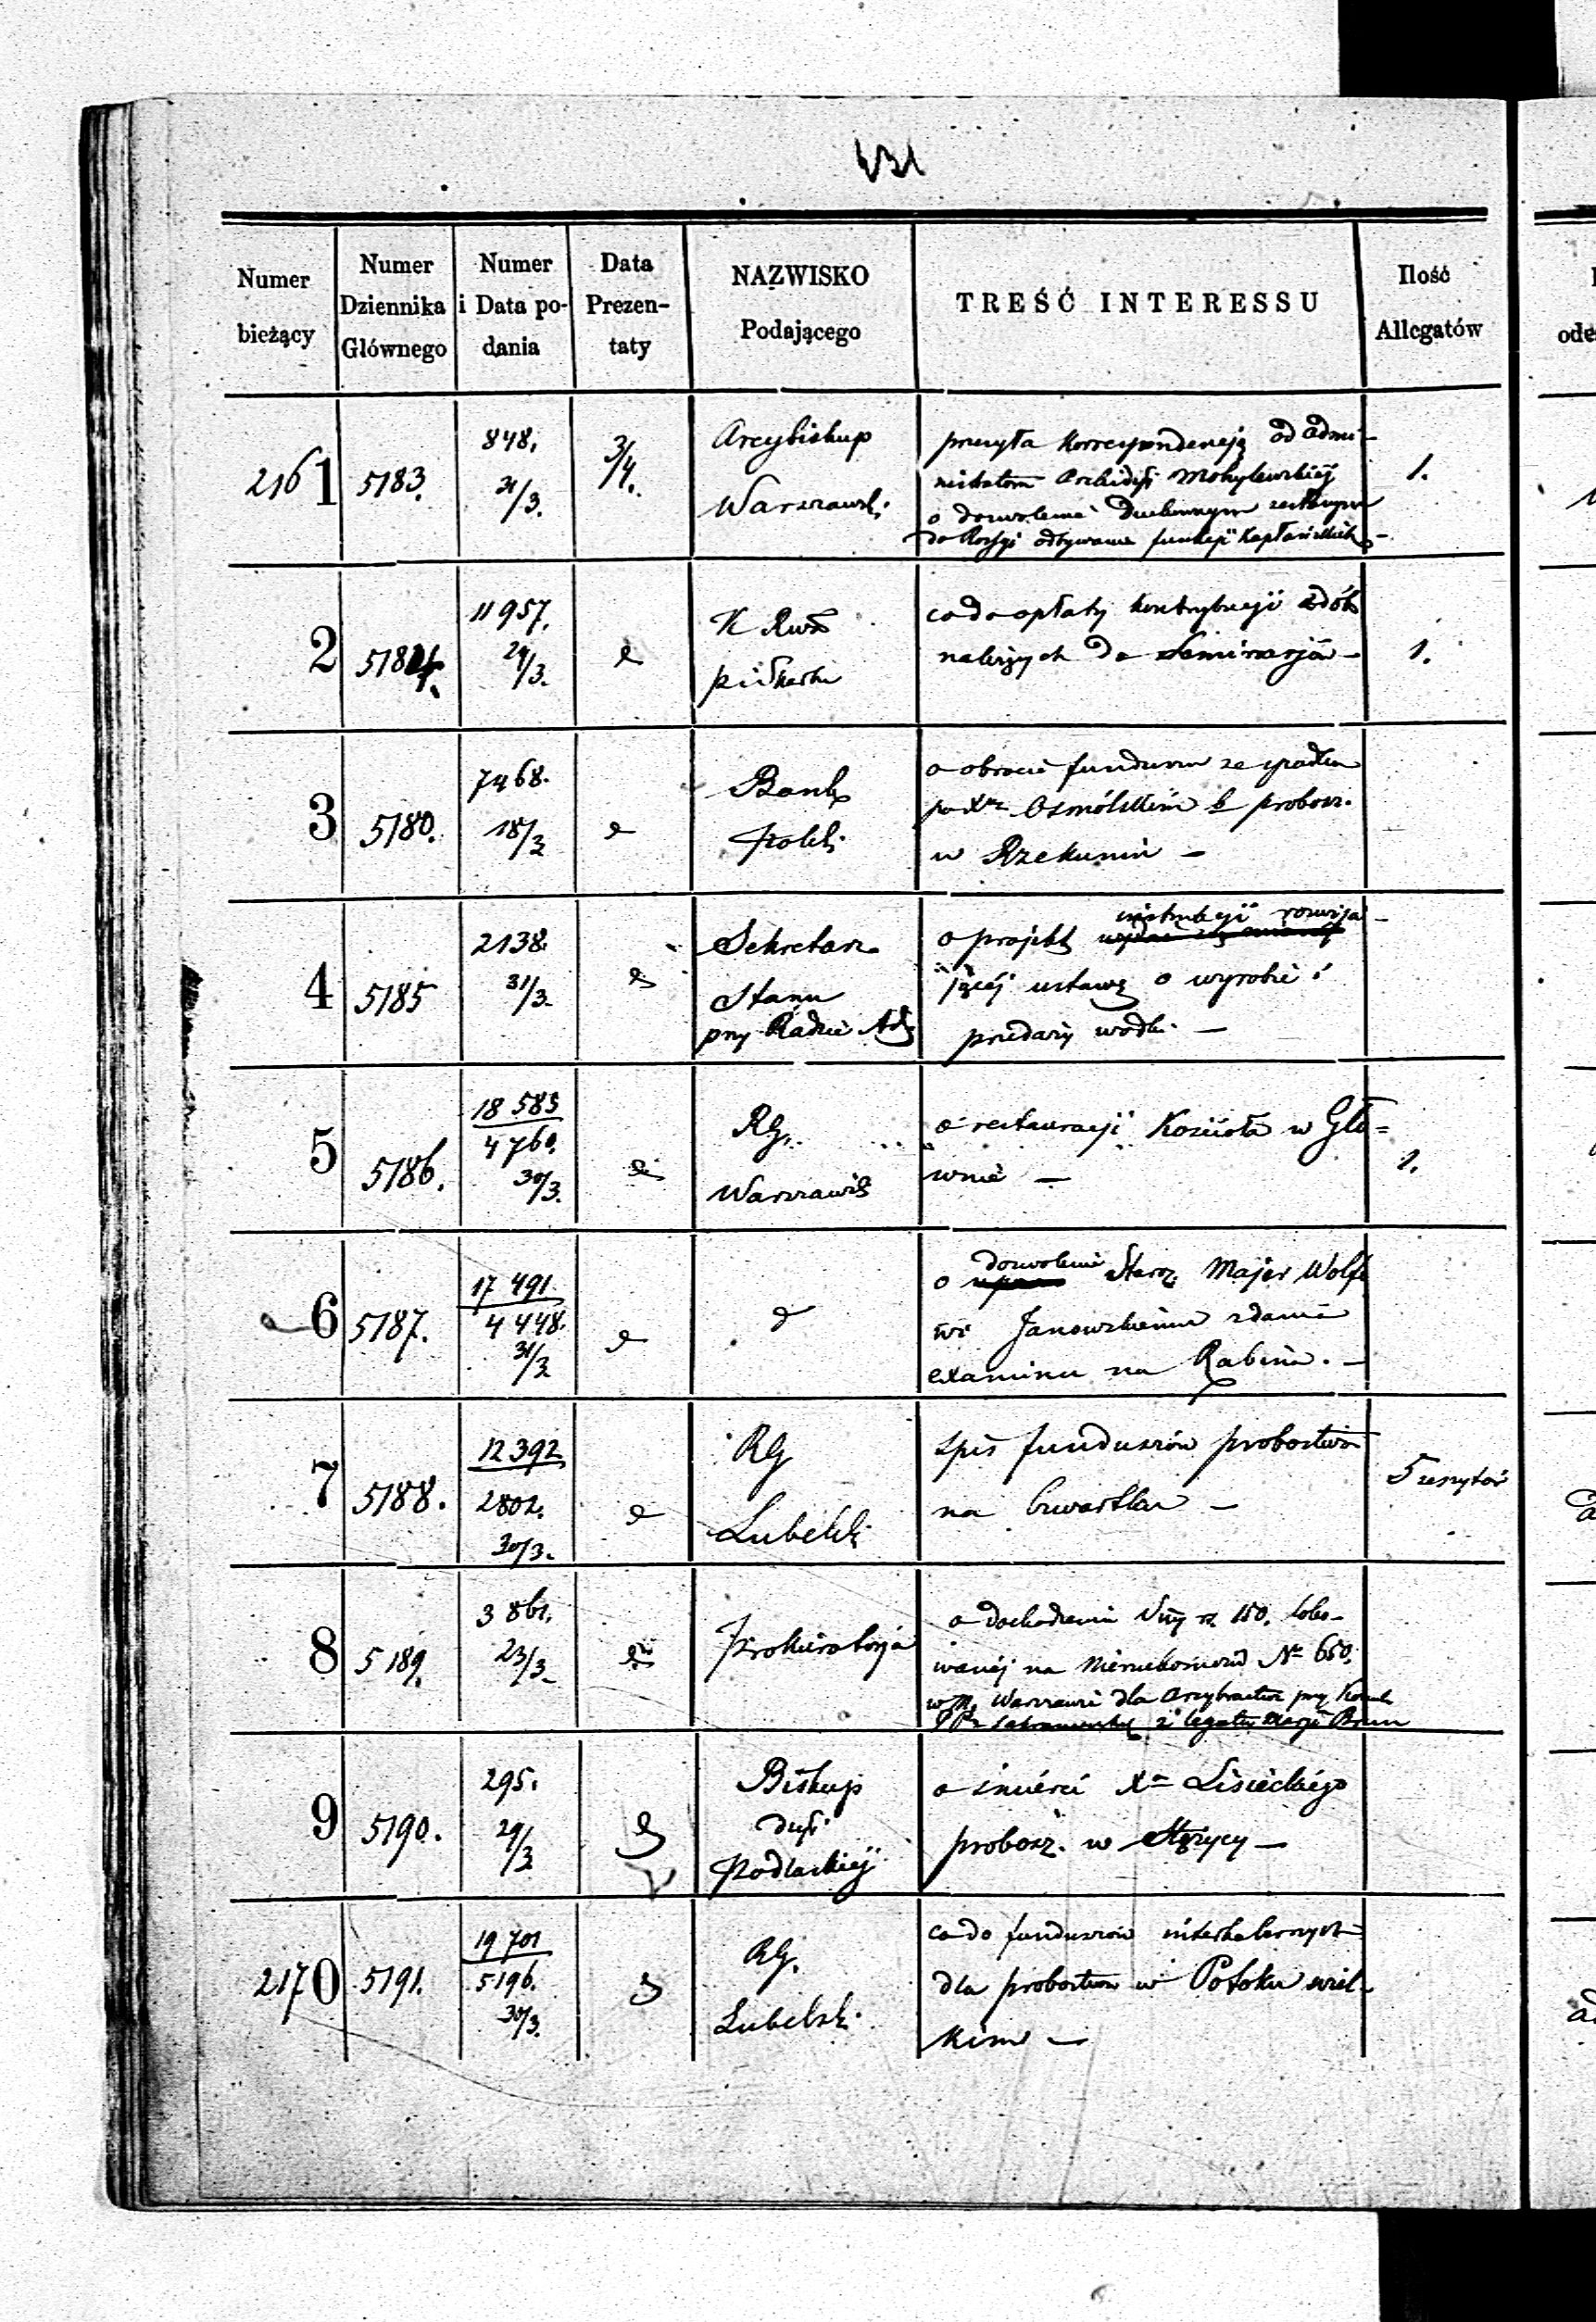 Numer bieżący
Numer Dziennika Głównego
Numer i Data podania
Data Prezentaty
NAZWISKO Podającego
TREŚĆ INTERESSU
Ilość Allegatów
2161
5183.
848.
31/3.
3/4.
Arcybiskup
Warszawsk.
przesyła korrespondencją od admi-
nistratora Archidyi Mohylewskiej
o dozwolenie Duchownym
do Rossyi odbywania funkcji Kapłańskich
1.
2
5184.
11957.
29/3.
d
K Rws
co do opłaty kontrybucji z dób
należących do Seminarjów –
1.
3
5180.
7468.
18/3
d
Bank
Polsk.
o obrocie funduszu ze spadku
po Xu Osmólskim b probosz.
w Rzekuniu –
4
5185
2138.
31/3.
d
Sekretarz
Stanu
przy Radzie Ad
instrukcji rozwija-
o projekt
jącej ustawę o wyrobie i
przedaży wódk. –
5
5186.
18 583
4760.
30/3.
d
RG.
Warszawsk
o restauracji Kościoła w Gło=
wnie –
1.
6
5187.
17 491
4448.
31/3
d
d
dozwolenie
o Staroz. Majer Wolfo
wi Janowskiemu zdania
examinu na Rabina. –
7
5188.
12392
2802.
30/3.
d
RG
Lubelsk
spis funduszów probostwa
na Czwartku –
5 zeszytów
8
5189.
3861.
23/3.
d
Prokuratorja
o dochodzenie Sumy rs. 150. loko-
wanej na Nieruchomości № 650.
w m. Warszawie dla Arcybractwa przy Kościele
PP. Sakramentek z legatu Maryi Brun
9
5190.
295.
29/3
d
Biskup
dyi.
Podlaskiej
o śmierci Xa Lisieckiego
probosz. w Stężycy –
2170
5191.
19 701
5196.
30/3.
d
RG.
Lubelsk.
co do funduszów interkalarnych
dla probostwa w Potoku wiel-
kim –